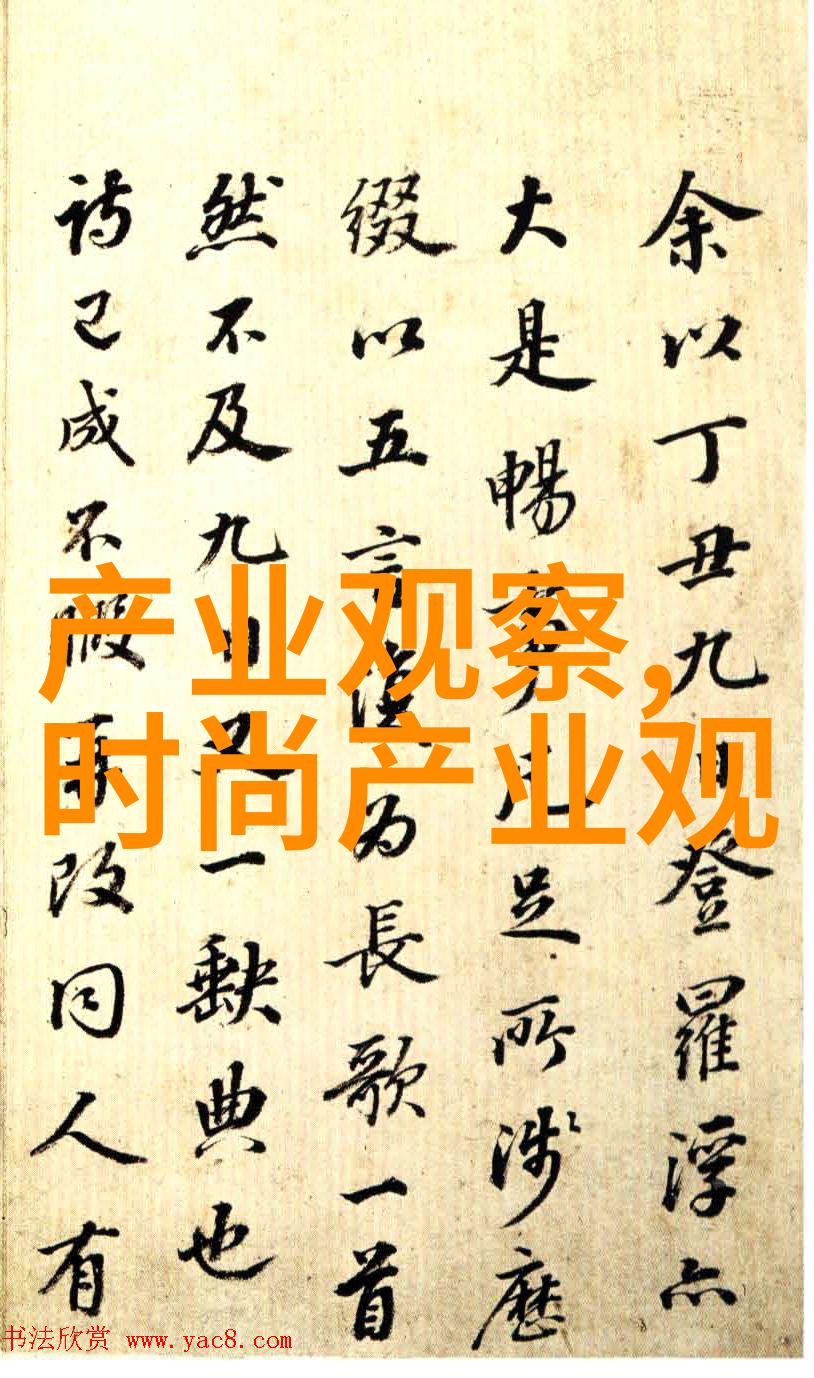 余以丁丑九日登羅浮亦
大是暢凡足所涉歷
缀以五言为長歌一首
然不及九日一缺典也
詩已成不暇再改同人有
产业观察,
时尚产业观
书法欣赏 www.yac8.com